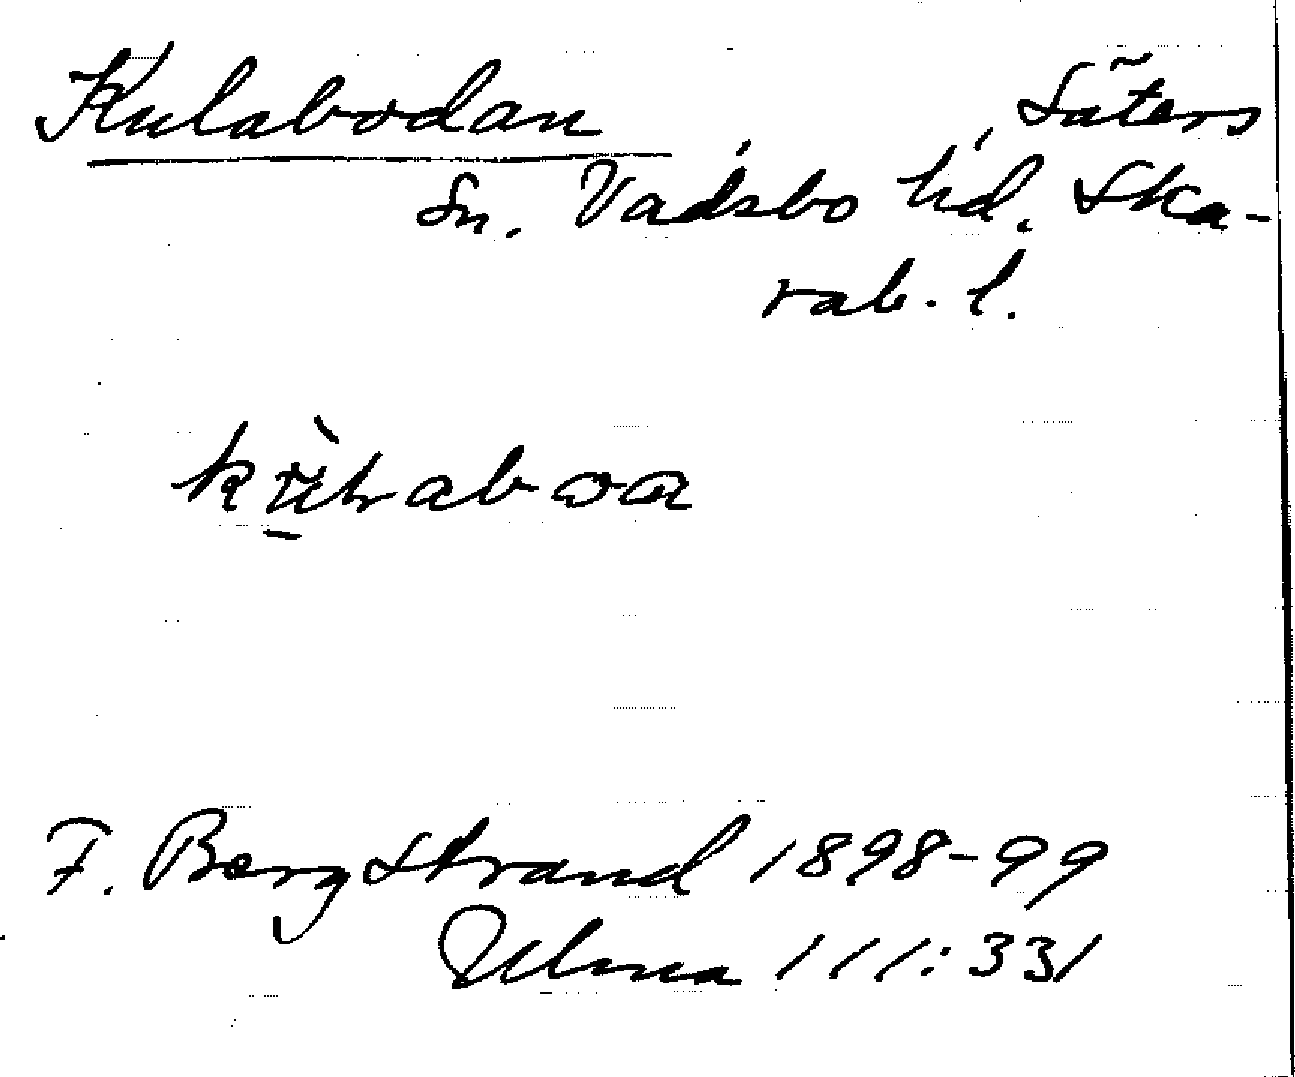 Kulabodan
Säters
sn. Vadsbo hd. Ska-
rab. l.
F. Bergstrand 1898-99
Ulma 111:331